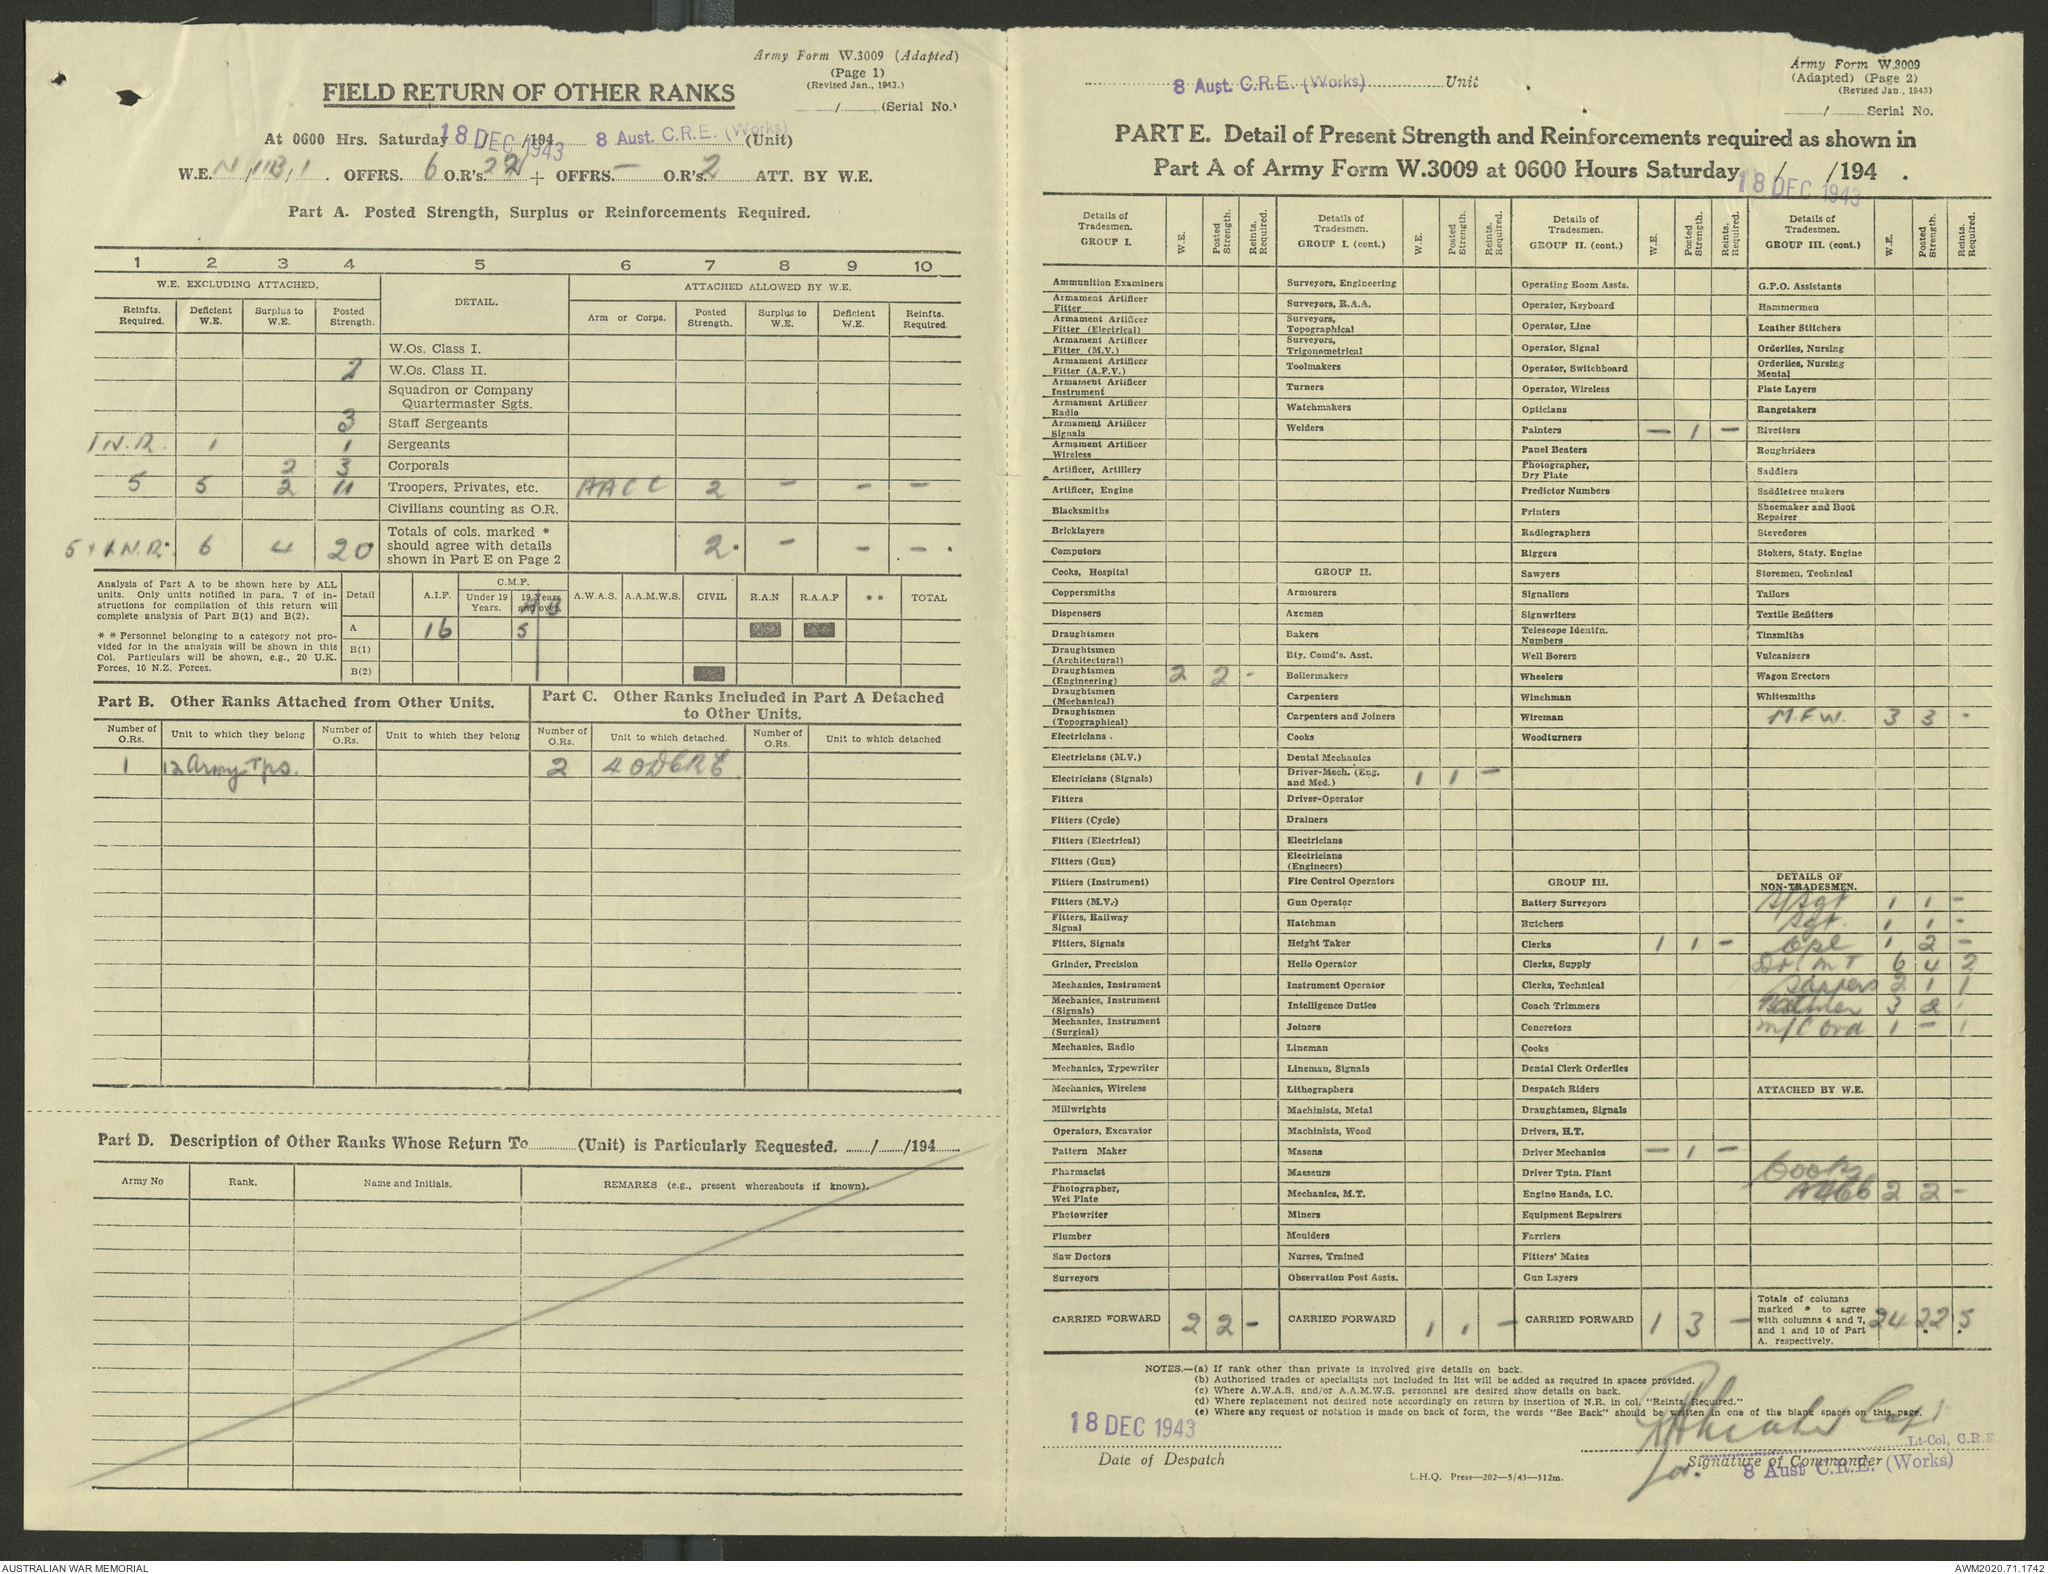 Army Form W.3009 (Adapted)
(Page 1)
(Revised Jan., 1943.)
FIELD RETURN OF OTHER RANKS
/ (Serial No.)
At 0600 Hrs. Saturday 18 DEC 1943 /194 8 Aust. C.R.E. (Works) (Unit)
W.E. N/11B/1. OFFRS. 6 O.R's. 22 + OFFRS. — O.R's. 2 ATT. BY W.E.
Part A. Posted Strength, Surplus or Reinforcements Required.
1 2 3 4 5 6 7 8 9 10
W.E. EXCLUDING ATTACHED. DETAIL. ATTACHED ALLOWED BY W.E.
Reinfts. Required. Deficient W.E. Surplus to W.E. Posted Strength. Arm or Corps. Posted Strength. Surplus to W.E. Deficient W.E. Reinfts. Required.
W.Os. Class I.
2 W.Os. Class II.
Squadron or Company
Quartermaster Sgts.
3 Staff Sergeants
1 N.R. 1 1 Sergeants
2 3 Corporals
5 5 2 11 Troopers, Privates, etc. AACC 2 - - -
Civilians counting as O.R.
5 + 1 N.R.* 6 4 20* Totals of cols. marked * should agree with details shown in Part E on Page 2 2* - - - *
Analysis of Part A to be shown here by ALL
units. Only units notified in para. 7 of in-
structions for compilation of this return will
complete analysis of Part B(1) and B(2).
* * Personnel belonging to a category not pro-
vided for in the analysis will be shown in this
Col. Particulars will be shown, e.g., 20 U.K.
Forces, 10 N.Z. Forces.
Detail A.I.F. C.M.F. Under 19 Years. 19 Years and over. A.W.A.S. A.A.M.W.S. CIVIL R.A.N R.A.A.F * * TOTAL
A 16 5
B(1)
B(2)
Part B. Other Ranks Attached from Other Units.
Part C. Other Ranks Included in Part A Detached
to Other Units.
Number of O.Rs. Unit to which they belong Number of O.Rs. Unit to which they belong Number of O.Rs. Unit to which detached. Number of O.Rs. Unit to which detached
1 12 Army Tps. 2 4 ODCRE.
Part D. Description of Other Ranks Whose Return To (Unit) is Particularly Requested. / /194
Army No Rank. Name and Initials. REMARKS (e.g., present whereabouts if known).
8 Aust. C.R.E. (Works) Unit
Army Form W.3009
(Adapted) (Page 2)
(Revised Jan., 1943)
/ Serial No.
PART E. Detail of Present Strength and Reinforcements required as shown in
Part A of Army Form W.3009 at 0600 Hours Saturday / /194 .
18 DEC 1943
Details of Tradesmen. GROUP I. W.E. Posted Strength. Reints. Required.
Ammunition Examiners
Armament Artificer Fitter
Armament Artificer Fitter (Electrical)
Armament Artificer Fitter (M.V.)
Armament Artificer Fitter (A.F.V.)
Armament Artificer Instrument
Armament Artificer Radio
Armament Artificer Signals
Armament Artificer Wireless
Artificer, Artillery
Artificer, Engine
Blacksmiths
Bricklayers
Computors
Cooks, Hospital
Coppersmiths
Dispensers
Draughtsmen
Draughtsmen (Architectural)
Draughtsmen (Engineering) 2 2 -
Draughtsmen (Mechanical)
Draughtsmen (Topographical)
Electricians .
Electricians (M.V.)
Electricians (Signals)
Fitters
Fitters (Cycle)
Fitters (Electrical)
Fitters (Gun)
Fitters (Instrument)
Fitters (M.V.)
Fitters, Railway Signal
Fitters, Signals
Grinder, Precision
Mechanics, Instrument
Mechanics, Instrument (Signals)
Mechanics, Instrument (Surgical)
Mechanics, Radio
Mechanics, Typewriter
Mechanics, Wireless
Millwrights
Operators, Excavator
Pattern Maker
Pharmacist
Photographer, Wet Plate
Photowriter
Plumber
Saw Doctors
Surveyors
CARRIED FORWARD 2 2 -
Details of Tradesmen. GROUP I. (cont.) W.E. Posted Strength. Reints. Required.
Surveyors, Engineering
Surveyors, R.A.A.
Surveyors, Topographical
Surveyors, Trigonometrical
Toolmakers
Turners
Watchmakers
Welders
GROUP II.
Armourers
Axemen
Bakers
Bty. Comd's. Asst.
Boilermakers
Carpenters
Carpenters and Joiners
Cooks
Dental Mechanics
Driver-Mech. (Eng. and Med.) 1 1 -
Driver-Operator
Drainers
Electricians
Electricians (Engineers)
Fire Control Operators
Gun Operator
Hatchman
Height Taker
Helio Operator
Instrument Operator
Intelligence Duties
Joiners
Lineman
Lineman, Signals
Lithographers
Machinists, Metal
Machinists, Wood
Masons
Masseurs
Mechanics, M.T.
Miners
Moulders
Nurses, Trained
Observation Post Assts.
CARRIED FORWARD 1 1 -
Details of Tradesmen. GROUP II. (cont.) W.E. Posted Strength. Reints. Required.
Operating Room Assts.
Operator, Keyboard
Operator, Line
Operator, Signal
Operator, Switchboard
Operator, Wireless
Opticians
Painters — 1 —
Panel Beaters
Photographer, Dry Plate
Predictor Numbers
Printers
Radiographers
Riggers
Sawyers
Signallers
Signwriters
Telescope Identfn. Numbers
Well Borers
Wheelers
Winchman
Wireman
Woodturners
GROUP III.
Battery Surveyors
Butchers
Clerks 1 1 -
Clerks, Supply
Clerks, Technical
Coach Trimmers
Concretors
Cooks
Dental Clerk Orderlies
Despatch Riders
Draughtsmen, Signals
Drivers, H.T.
Driver Mechanics — 1 —
Driver Tptn. Plant
Engine Hands, I.C.
Equipment Repairers
Farriers
Fitters' Mates
Gun Layers
CARRIED FORWARD 1 3 -
Details of Tradesmen. GROUP III. (cont.) W.E. Posted Strength. Reints. Required.
G.P.O. Assistants
Hammermen
Leather Stitchers
Orderlies, Nursing
Orderlies, Nursing Mental
Plate Layers
Rangetakers
Rivetters
Roughriders
Saddlers
Saddletree makers
Shoemaker and Boot Repairer
Stevedores
Stokers, Staty. Engine
Storemen, Technical
Tailors
Textile Refitters
Tinsmiths
Vulcanizers
Wagon Erectors
Whitesmiths
M.F.W. 3 3 -
DETAILS OF NON-TRADESMEN.
S/Sgt 1 1 -
Sgt. 1 1 -
Cpl 1 2 -
Dr. MT 6 4 2
Sappers 2 1 1
Batmen 3 2 1
M/C Ord 1 - 1
ATTACHED BY W.E.
Cooks
A466 2 2 -
Totals of columns marked * to agree with columns 4 and 7, and 1 and 10 of Part A. respectively. 24 22 5
NOTES.—(a) If rank other than private is involved give details on back.
(b) Authorised trades or specialists not included in list will be added as required in spaces provided.
(c) Where A.W.A.S. and/or A.A.M.W.S. personnel are desired show details on back.
(d) Where replacement not desired note accordingly on return by insertion of N.R. in col. "Reints. Required."
(e) Where any request or notation is made on back of form, the words "See Back" should be written in one of the blank spaces on this page.
18 DEC 1943
Date of Despatch
Capt
Lt-Col, C.R.E
for. Signature of Commander
8 Aust C.R.E. (Works)
L.H.Q. Press—202—5/43—312m.
AUSTRALIAN WAR MEMORIAL
AWM2020.71.1742